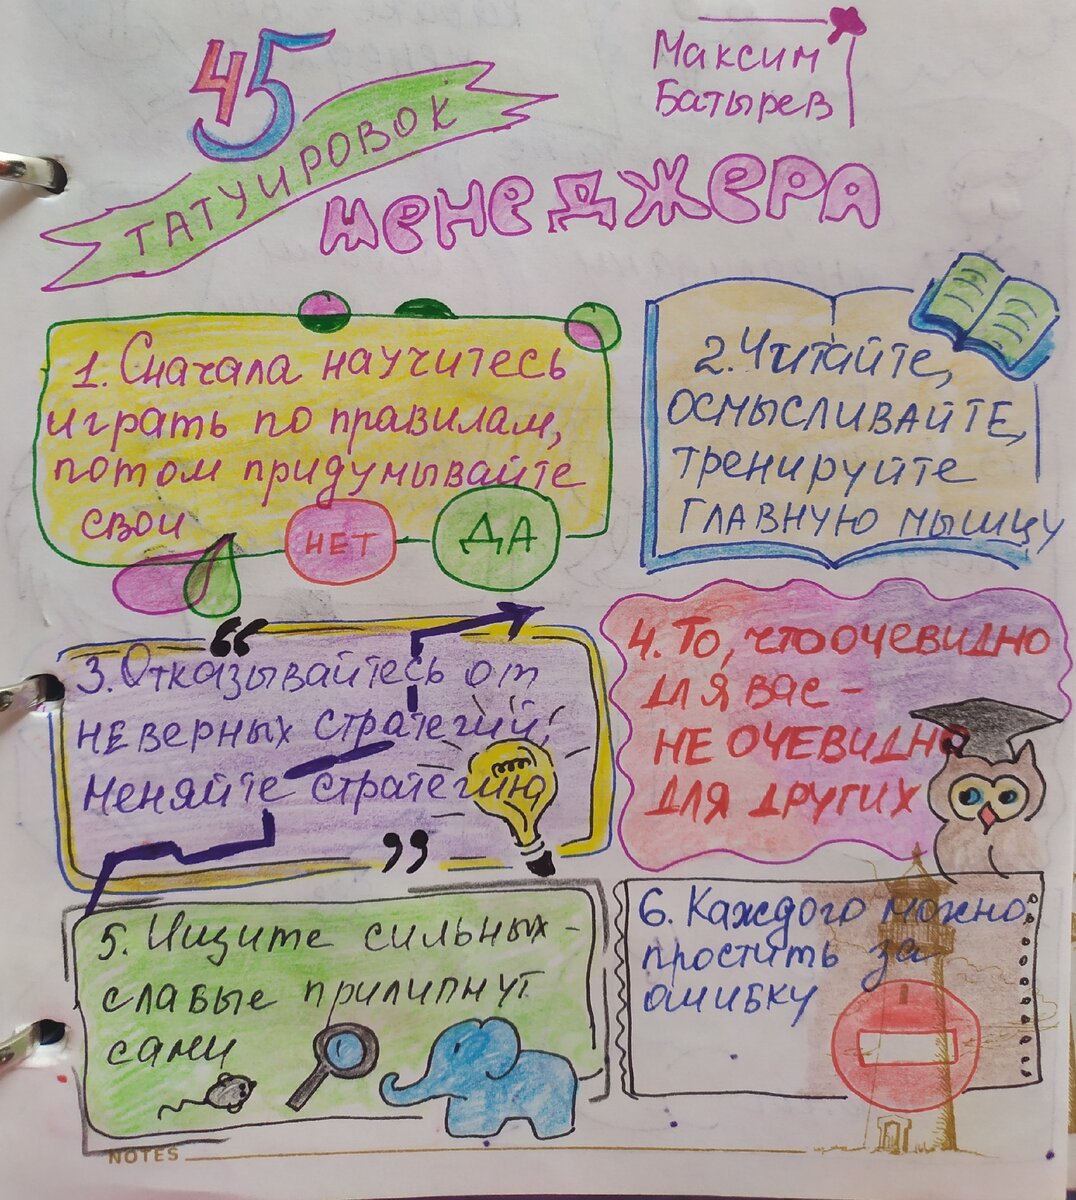 45
ТАТУИРОВОК
МЕНЕДЖЕРА
Максим
Батырев
1. Сначала научитесь
играть по правилам,
потом придумывайте
свои
НЕТ
ДА
2. Читайте,
ОСМЫСЛИВАЙТЕ,
тренируйте
ГЛАВНУЮ мышцу
“
3. Отказывайтесь от
неверных стратегий,
меняйте стратегию
”
4. То, что очевидно
для вас –
НЕ ОЧЕВИДНО
ДЛЯ ДРУГИХ
5. Ищите сильных -
слабые прилипнут
сами
6. Каждого можно
простить за
ошибку
NOTES